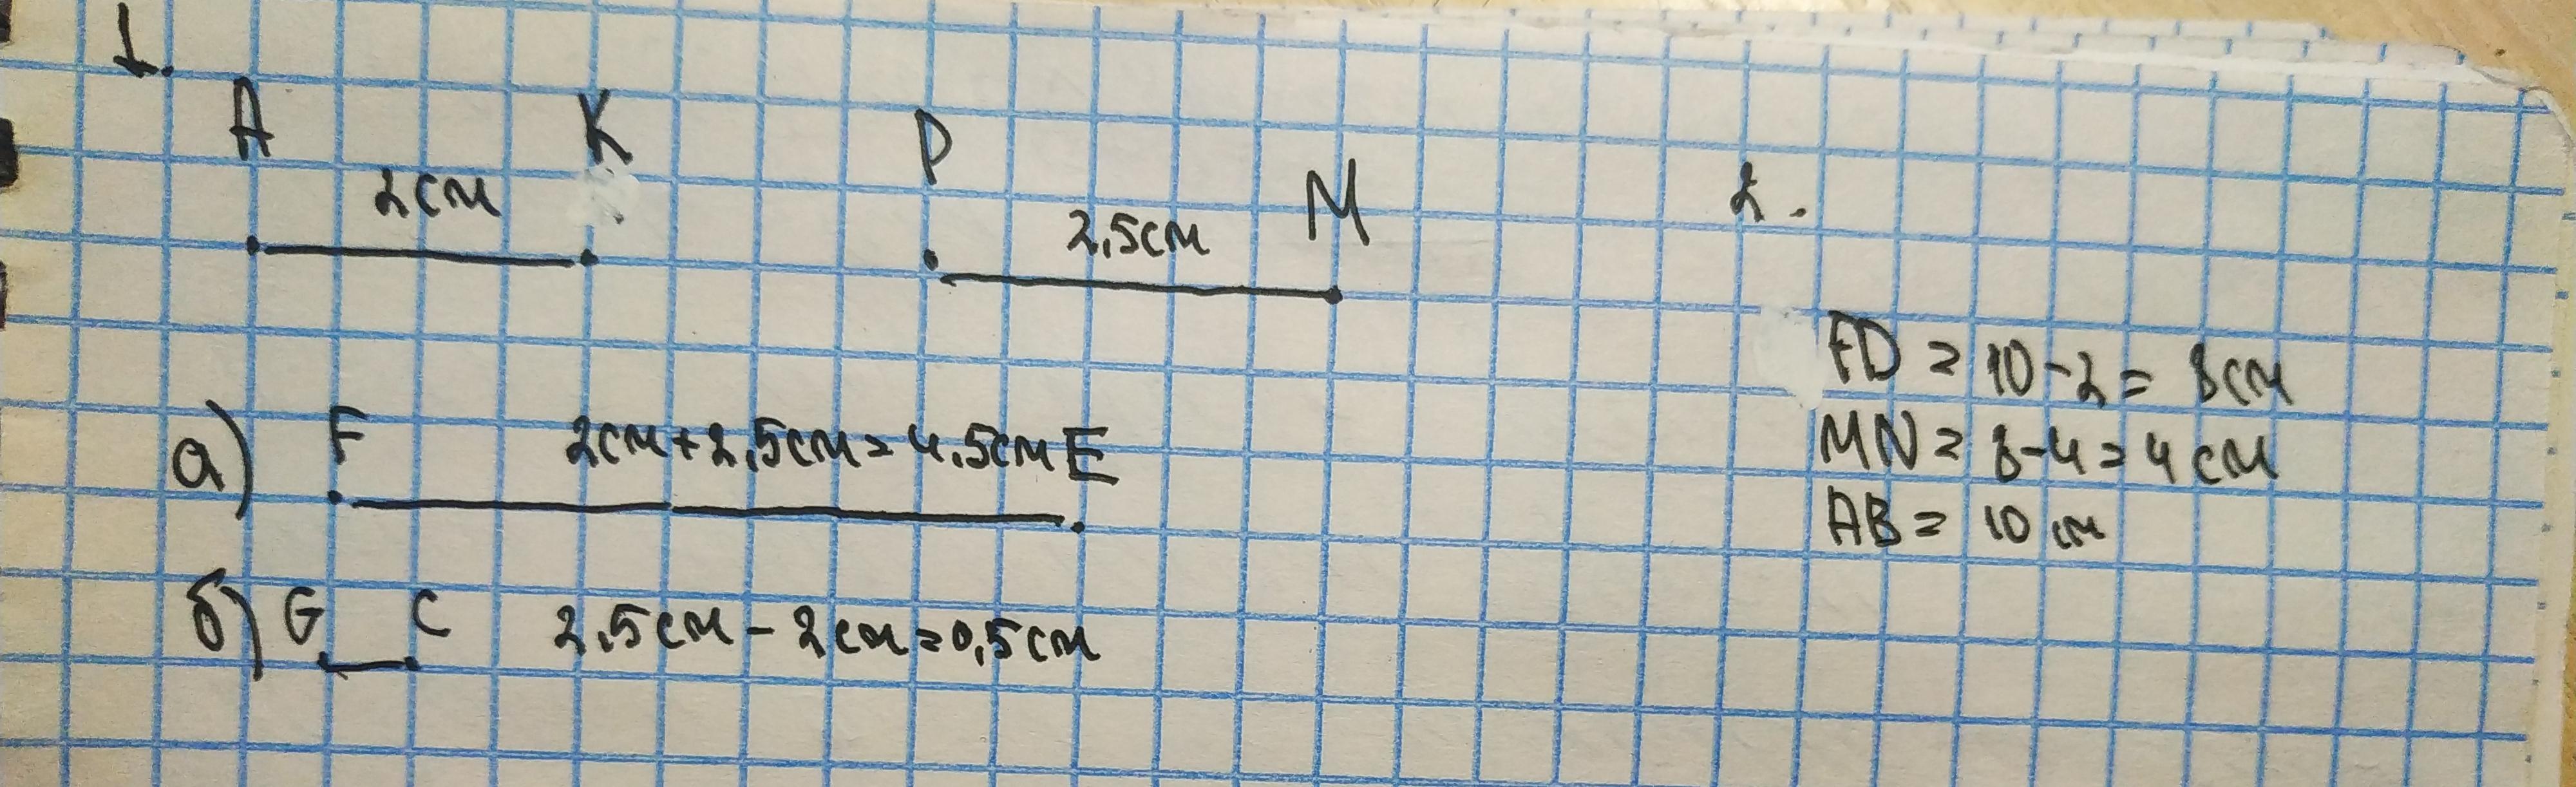 1.
A K P M
2см 2,5см
а) F 2см+2,5см=4,5см E
б) G C 2,5см-2см=0,5см
2.
FD = 10-2= 8см
MN= 8-4=4см
AB= 10см